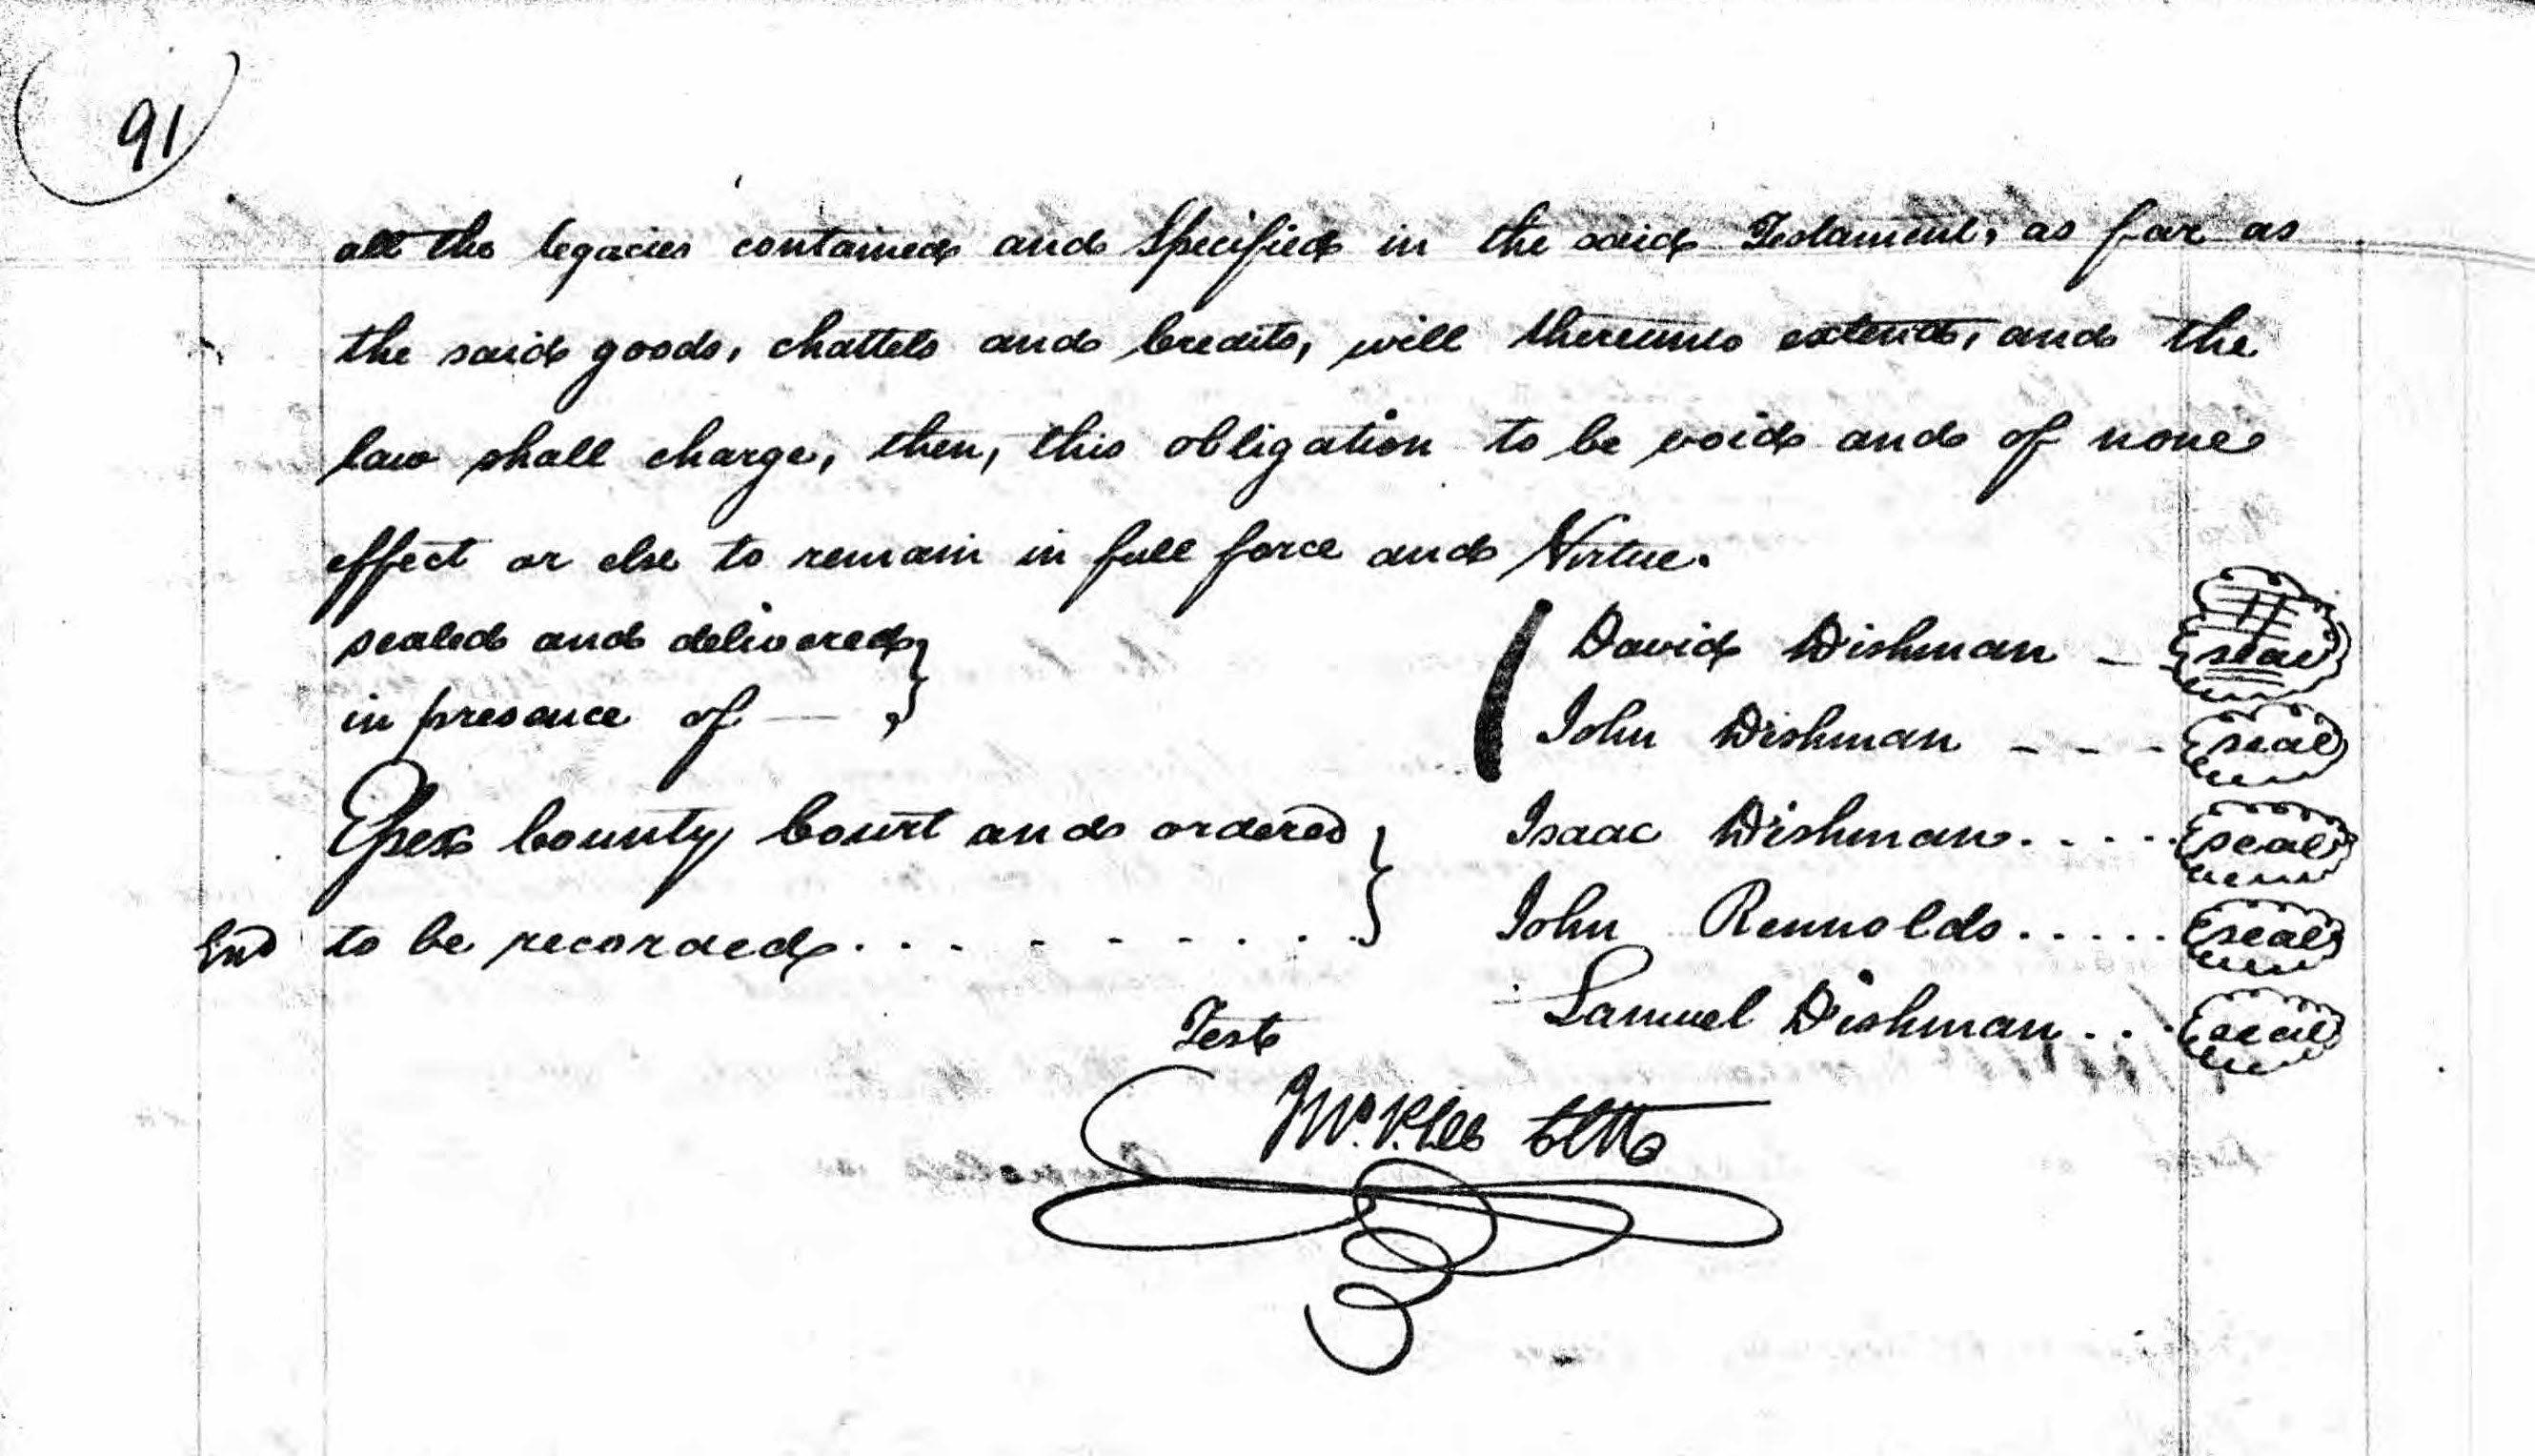 91
all the legacies contained and Specified in the said Testament, as far as
the said goods, chattels and Credits, will thereunto extend, and the
law shall charge, then, this obligation to be void and of none
effect or else to remain in full force and Virtue.
sealed and delivered
in presence of —
David Dishman — seal
John Dishman - - - seal
Essex County Court and ordered
Isaac Dishman. . . . . seal
End to be recorded. . . . . . . . .
John Rennolds. . . . . seal
Samuel Dishman. . . seal
Test
Jno. P. Lee